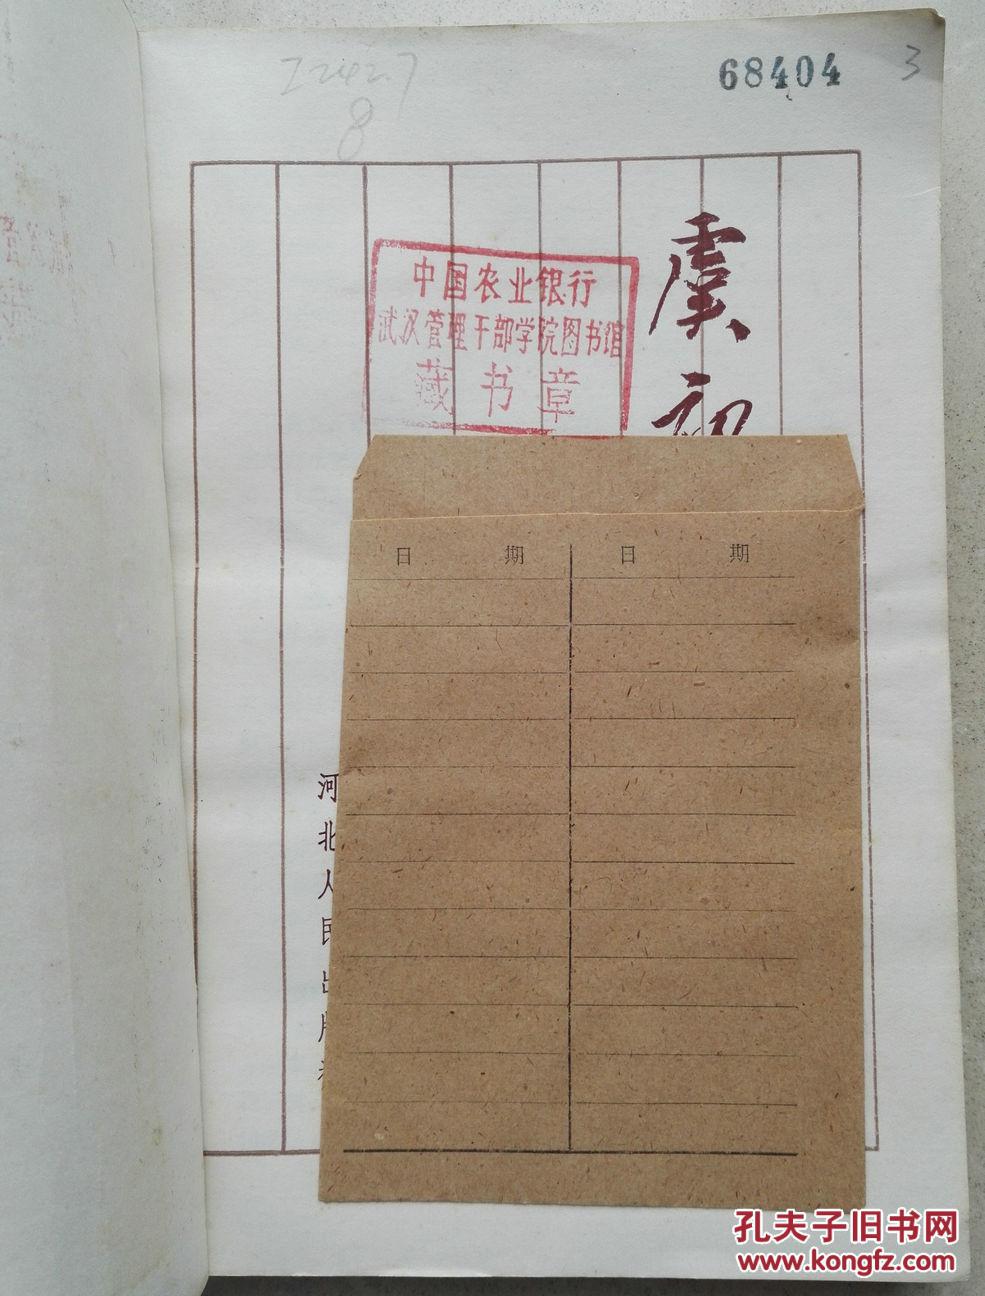 I242.7
8
68404
3
虞初
中国农业银行
武汉管理干部学院图书馆
藏书章
日期 日期
河北人民出版社
孔夫子旧书网
www.kongfz.com